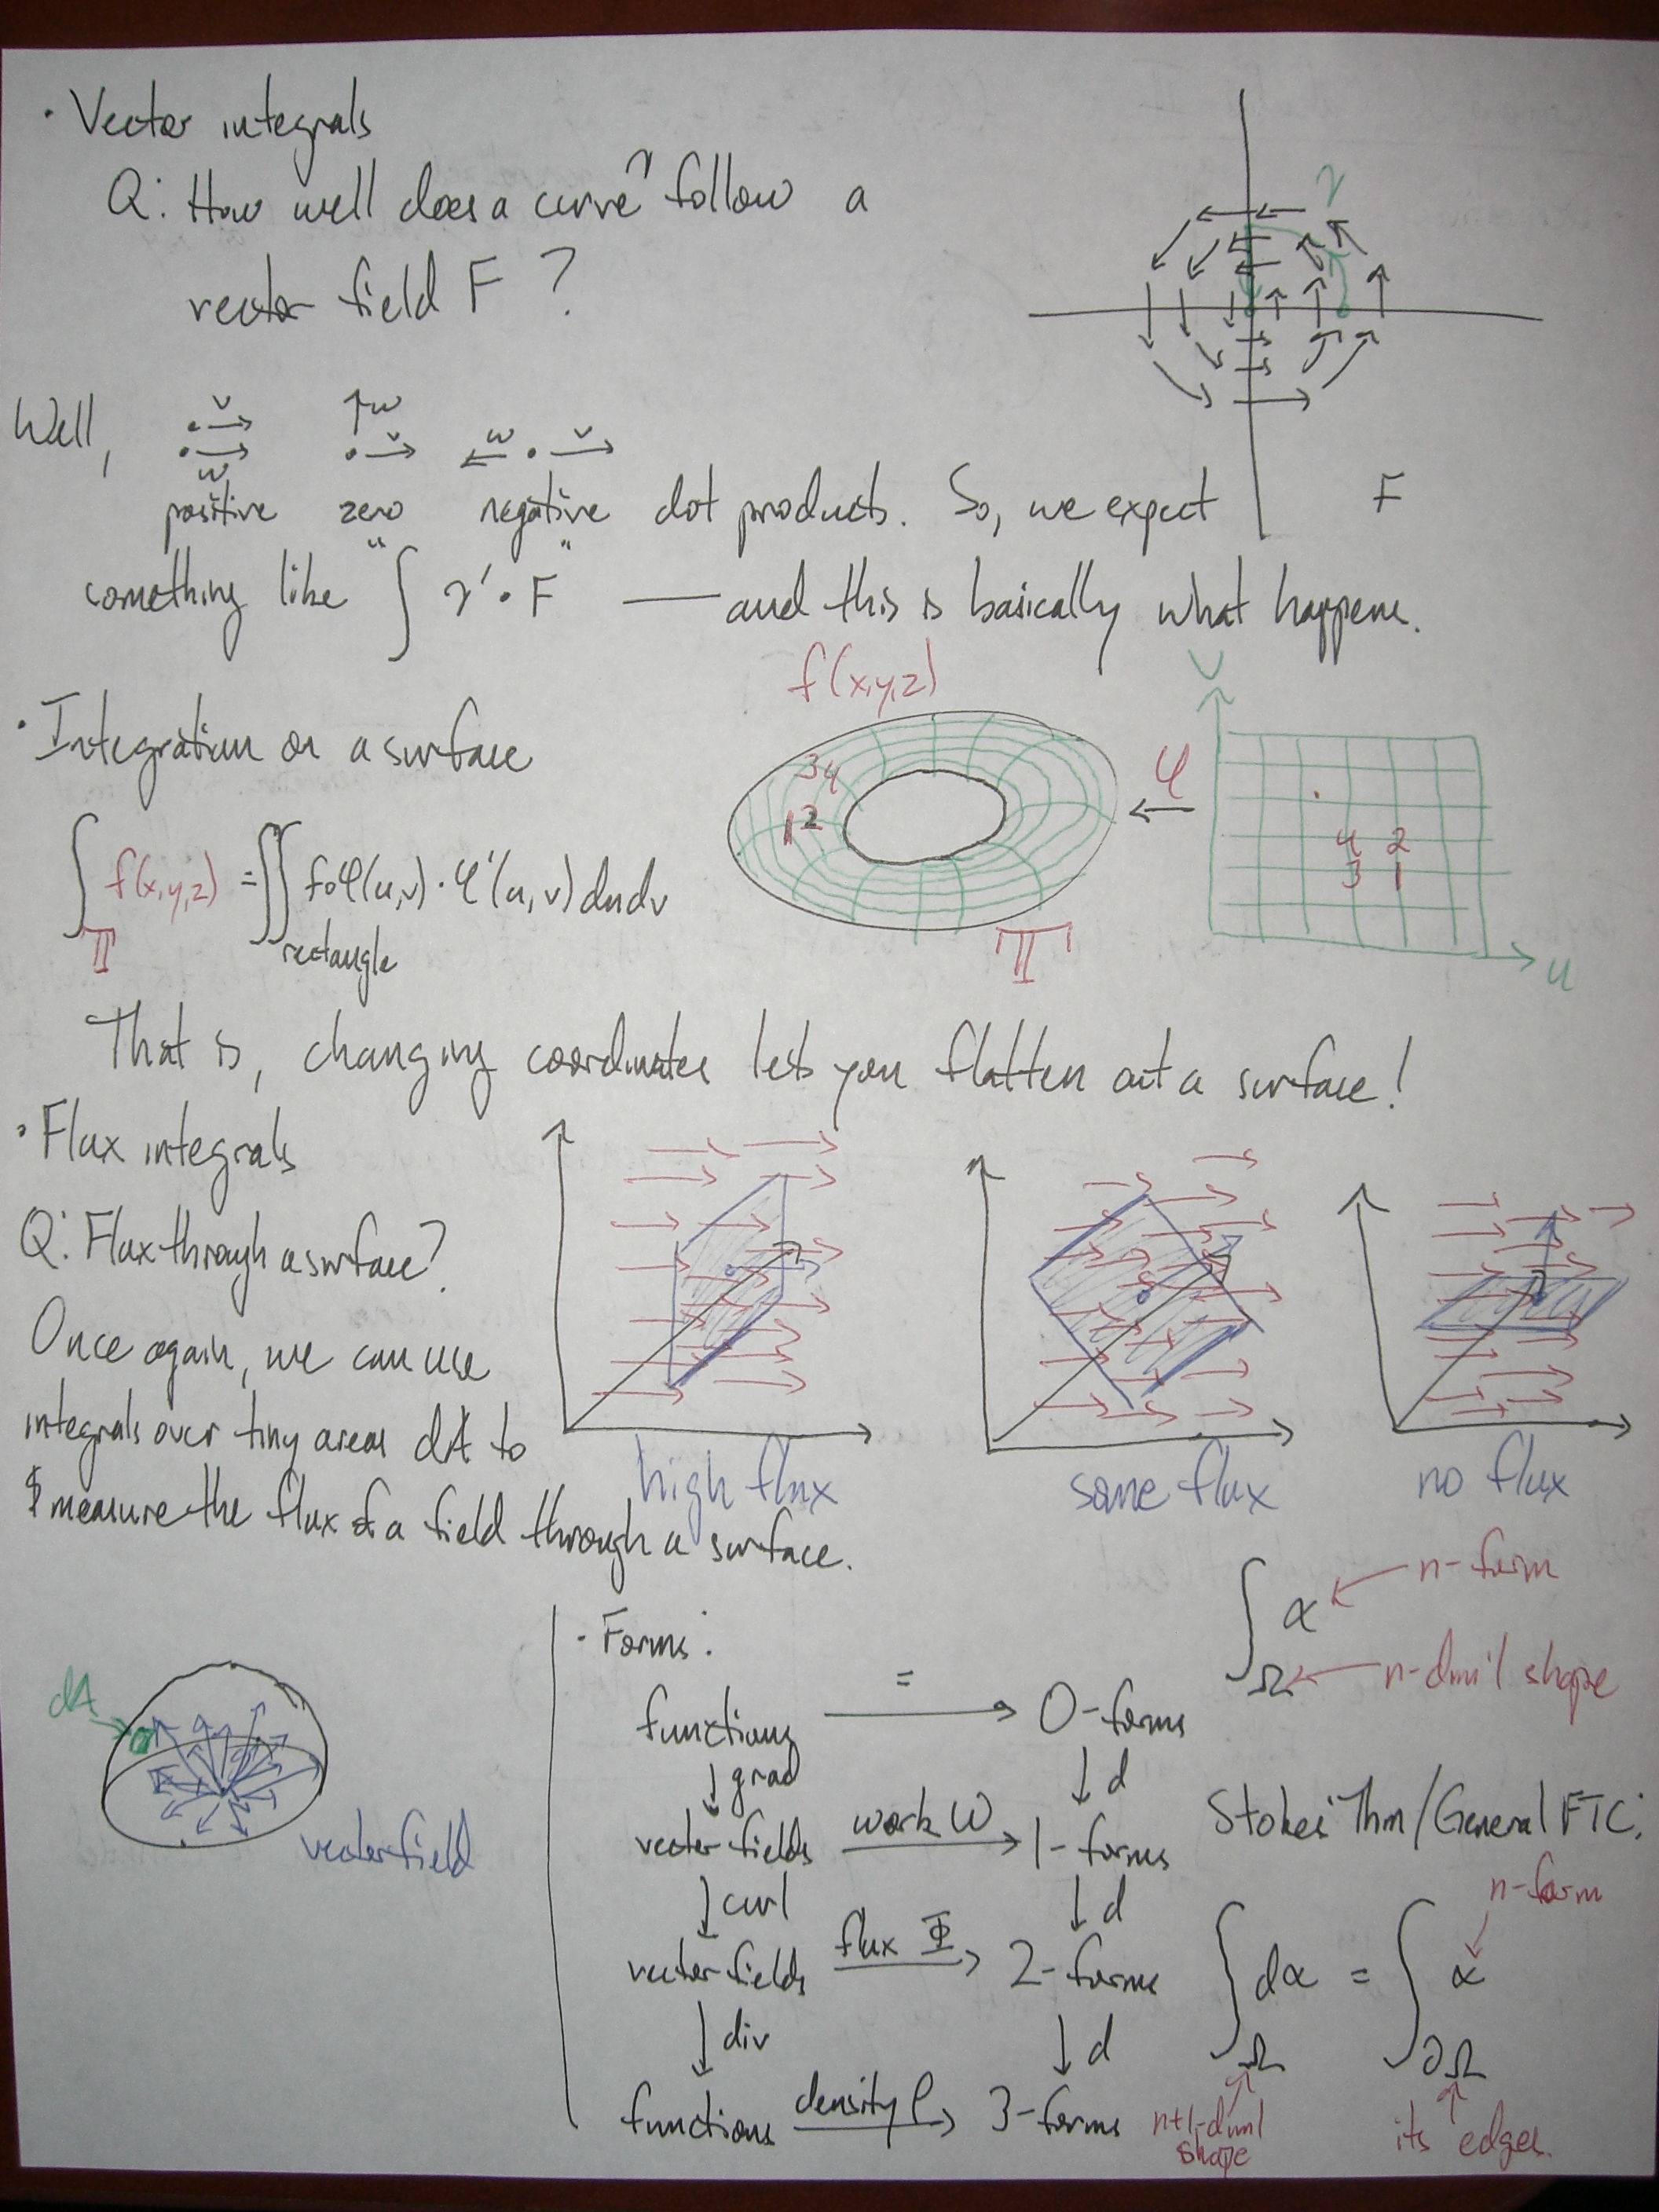 · Vector integrals
Q: How well does a curve γ follow a
vector field F?
γ
F
Well,
v
w
w
v
w
v
positive zero negative dot products. So, we expect
something like "∫ γ' · F" — and this is basically what happens.
· Integration on a surface
f(x,y,z)
3 4
1 2
φ
v
4 2
3 1
u
T
∫_T f(x,y,z) = ∬_rectangle f∘φ(u,v) · φ'(u,v) du dv
That is, changing coordinates lets you flatten out a surface!
· Flux integrals
Q: Flux through a surface?
Once again, we can use
integrals over tiny areas dA to
measure the flux of a field through a surface.
high flux
some flux
no flux
dA
vector field
· Forms:
functions = → 0-forms
↓ grad ↓ d
vector fields work W → 1-forms
↓ curl ↓ d
vector fields flux Φ → 2-forms
↓ div ↓ d
functions density ρ → 3-forms
∫_Ω α ← n-form
← n-dim'l shape
Stokes' Thm/General FTC:
n-form
∫_Ω dα = ∫_∂Ω α
n+1-dim'l
shape
its edges.